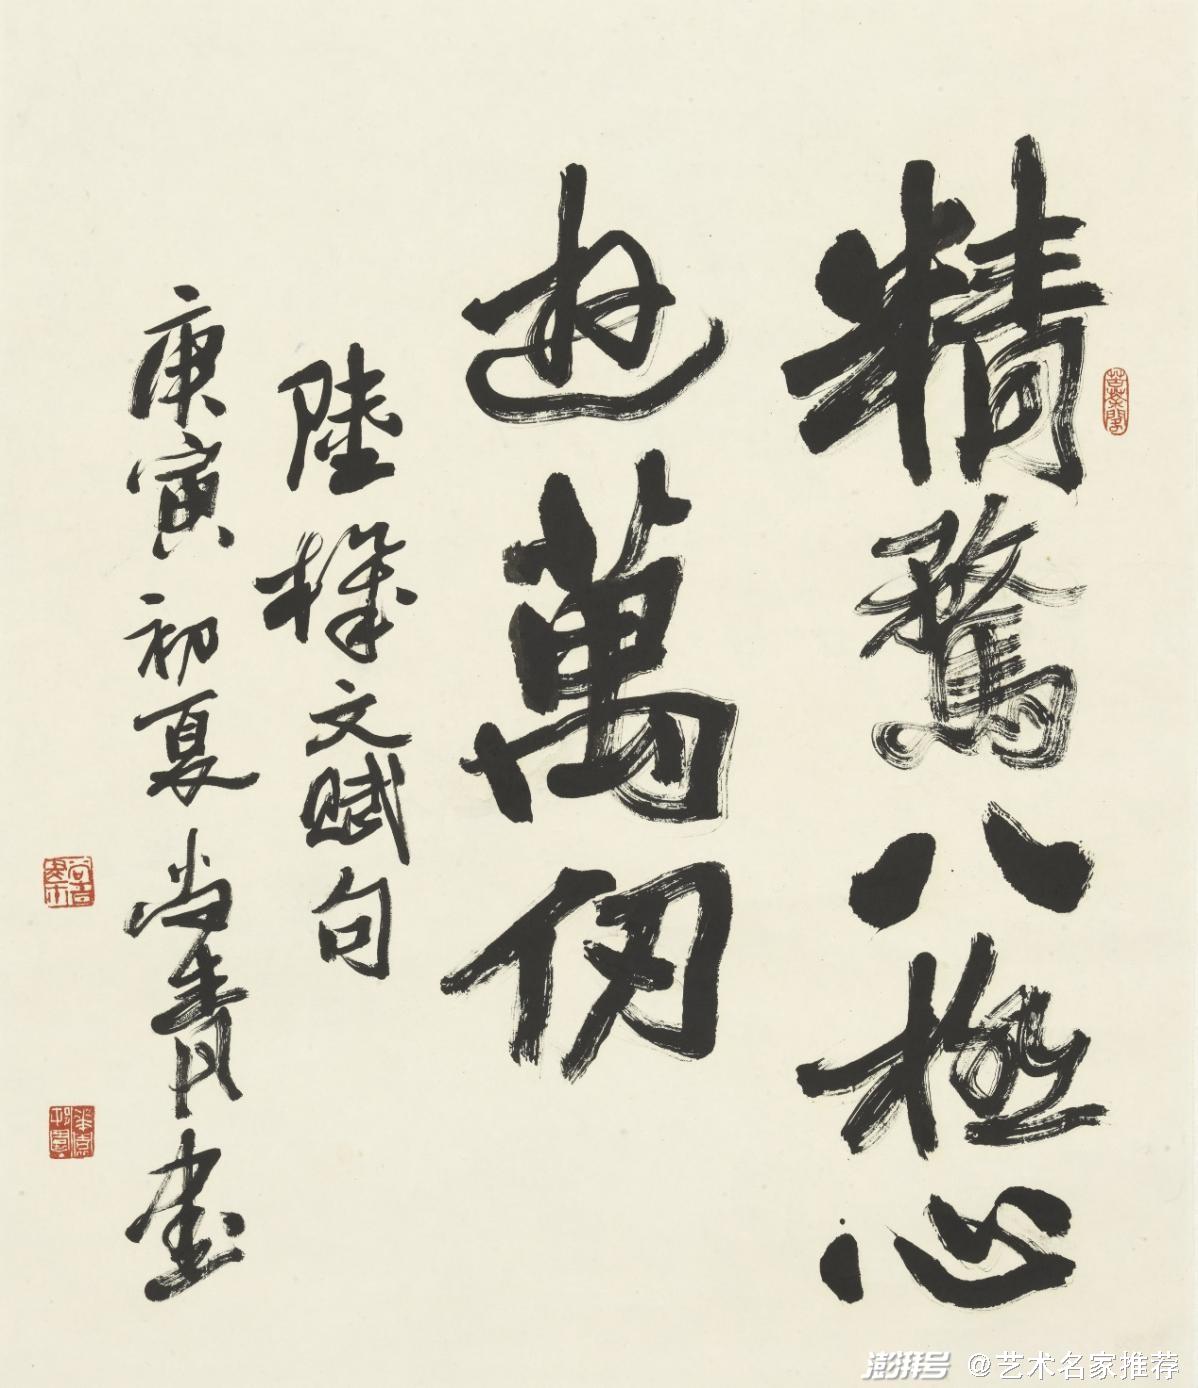 精鹜八極心
遊萬仞
陸機文賦句
庚寅初夏尚青書
澎湃号 @艺术名家推荐